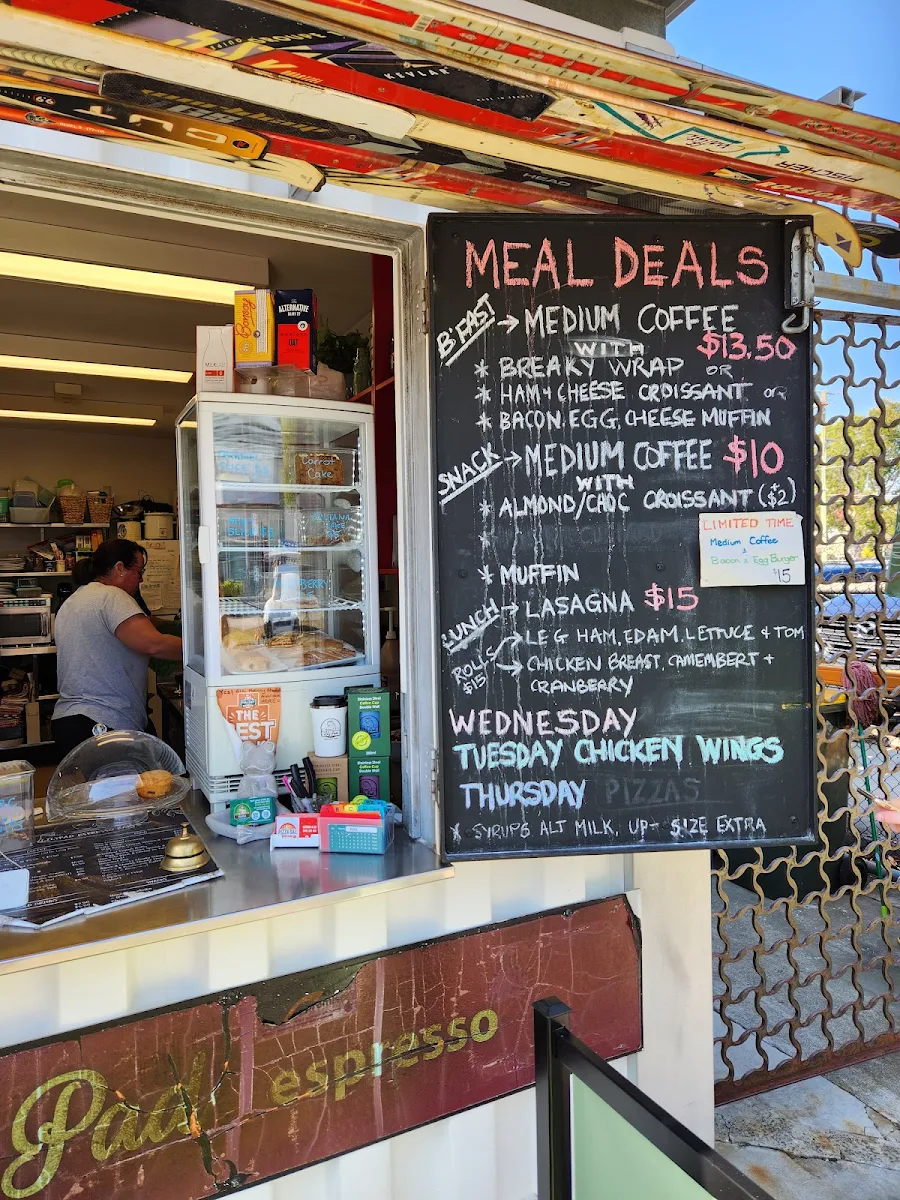 KEVLAR
FISCHER
ALTERNATIVE
OAT
Bonsoy
Carrot
Cake
BERRY
THE
EST
MEAL DEALS
B'FAST → MEDIUM COFFEE
WITH $13.50
* BREAKY WRAP OR
* HAM + CHEESE CROISSANT or
* BACON. EGG, CHEESE MUFFIN
SNACK → MEDIUM COFFEE $10
WITH
* ALMOND/CHOC CROISSANT (+$2)
*
* MUFFIN
LIMITED TIME
Medium Coffee
&
Bacon & Egg Burger
$15
LUNCH → LASAGNA $15
ROLLS $15 → LEG HAM, EDAM, LETTUCE + TOM
→ CHICKEN BREAST, CAMEMBERT +
CRANBERRY
WEDNESDAY
TUESDAY CHICKEN WINGS
THURSDAY PIZZAS
* SYRUPS ALT MILK, UP- SIZE EXTRA
Pad espresso